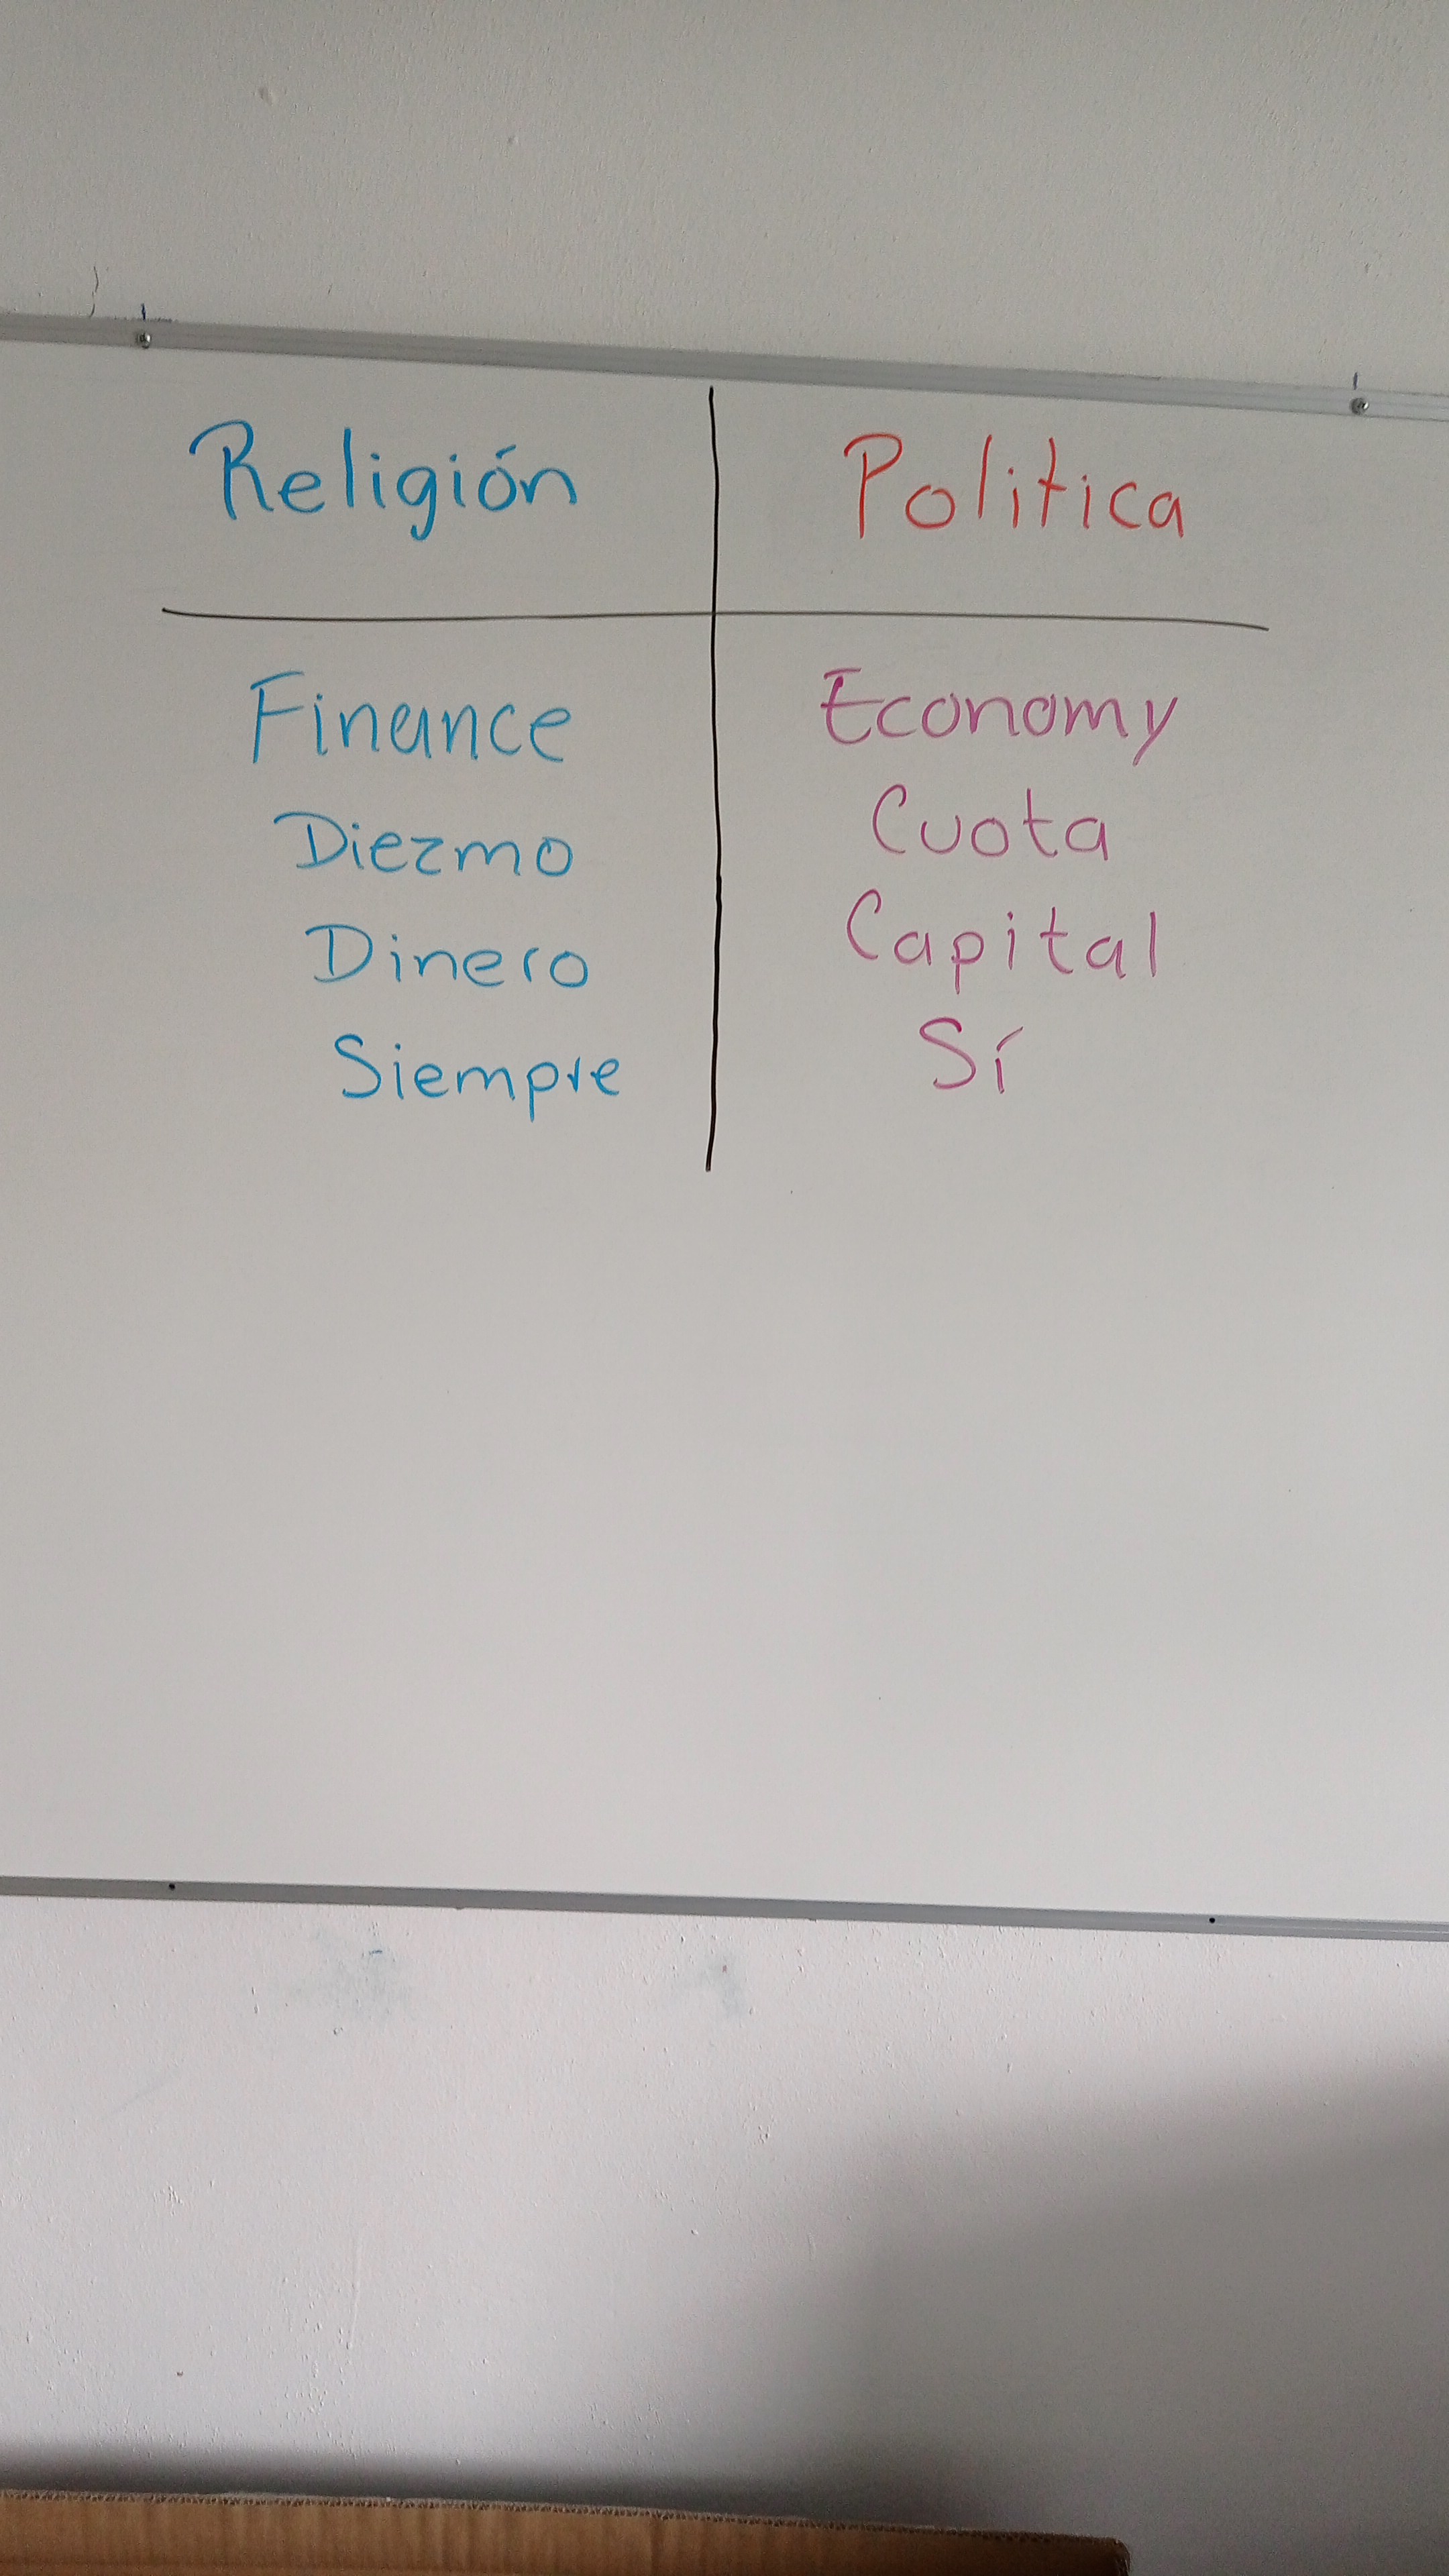 Religión Politica
Finance Economy
Diezmo Cuota
Dinero Capital
Siempre Sí